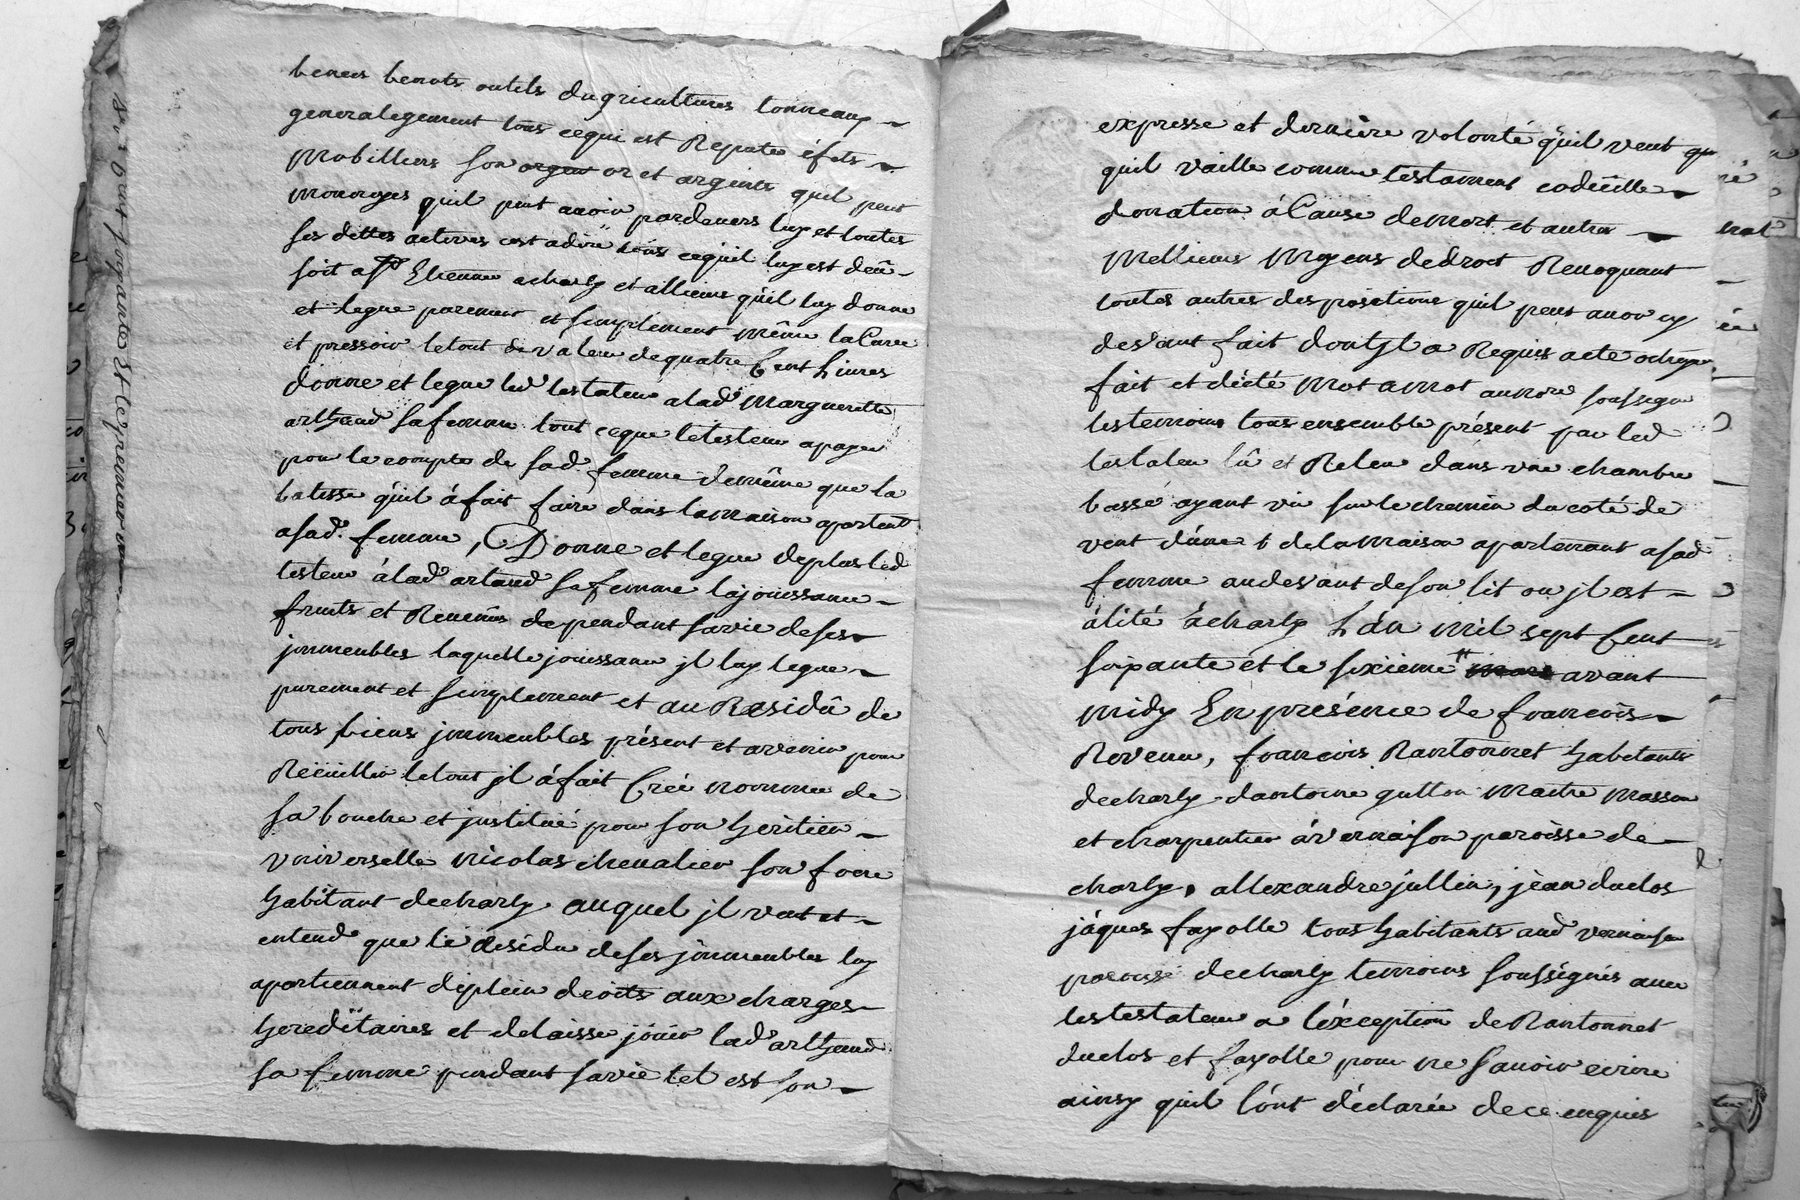 benots outils dagricultures tonneaux
generalegement tous cequi est Repute éfets
Mobilliers son or et argents quil peut
monoyes quil peut avoir pardevers luy et toutes
ses dettes actives cest adire tous cequil luy est deû
soit a St Etienne acharly et allieurs quil luy donne
et legue purement et simplement même la Cuve
et pressoir letout de valeur dequatre Cent Livres
donne et legue led testateur alad Margueritte
arthaud safemme tout ceque letesteur apayer
pour le compte de sad. femme demême que la
batisse quil áfait faire dans lamaison apartent
asad. femme, Donne et legue deplus led
testeur álad artaud safemme lajouissance
fruits et Revenus dependant savie deses
jmmeubles laquelle jouissance jl luy legue
purement et simplement et au Residû de
tous biens jmmeubles présent et avenir pour
Reëuillir letout jl áfait Créé nommée de
sa bouche et justitué pour son heritier
vniverselle nicolas chevalier son frere
habitant decharly auquel jl veut et
entend que lé Residu deses jmmeubles luy
apartiennent deplein droits aux charges
hereditaires et delaisse jouir lad arthaud
sa femme pendant savie tel est son
soixante et le premier
expresse et derniere volonté quil veut
quil vaille comme testament codicille
donation á Cause demort et autres
Mellieurs Moyens dedroit Revoquant
toutes autres despositions quil peut avoir cy
devant fait dont jl a Requis acte
fait et dicté Mot amot aunore soussigne
lestemoins tous ensemble présent par led
testateur lû et Releu dans vne chambre
basse ayant vû sur le chemin ducoté de
vent de lamaison apartenant asad
femme audevant deson lit ou jl est
álité ácharly L'án mil sept Cent
soixante et le sixieme avant
midy En présence de francois
Revenu, francois Rantonnet habitants
decharly dantoine gutton maitre Masson
et charpentier ávernaison paroisse de
charly, allexandre jullien, jean duclos
jáques fayolle tous habitants aud vernaison
paroisse decharly temoins soussignés avec
lestestateur a léxception de Rantonnet
duclos et fayolle pour ne savoir ecrire
ainsy quil lónt déclarée de ce enquis